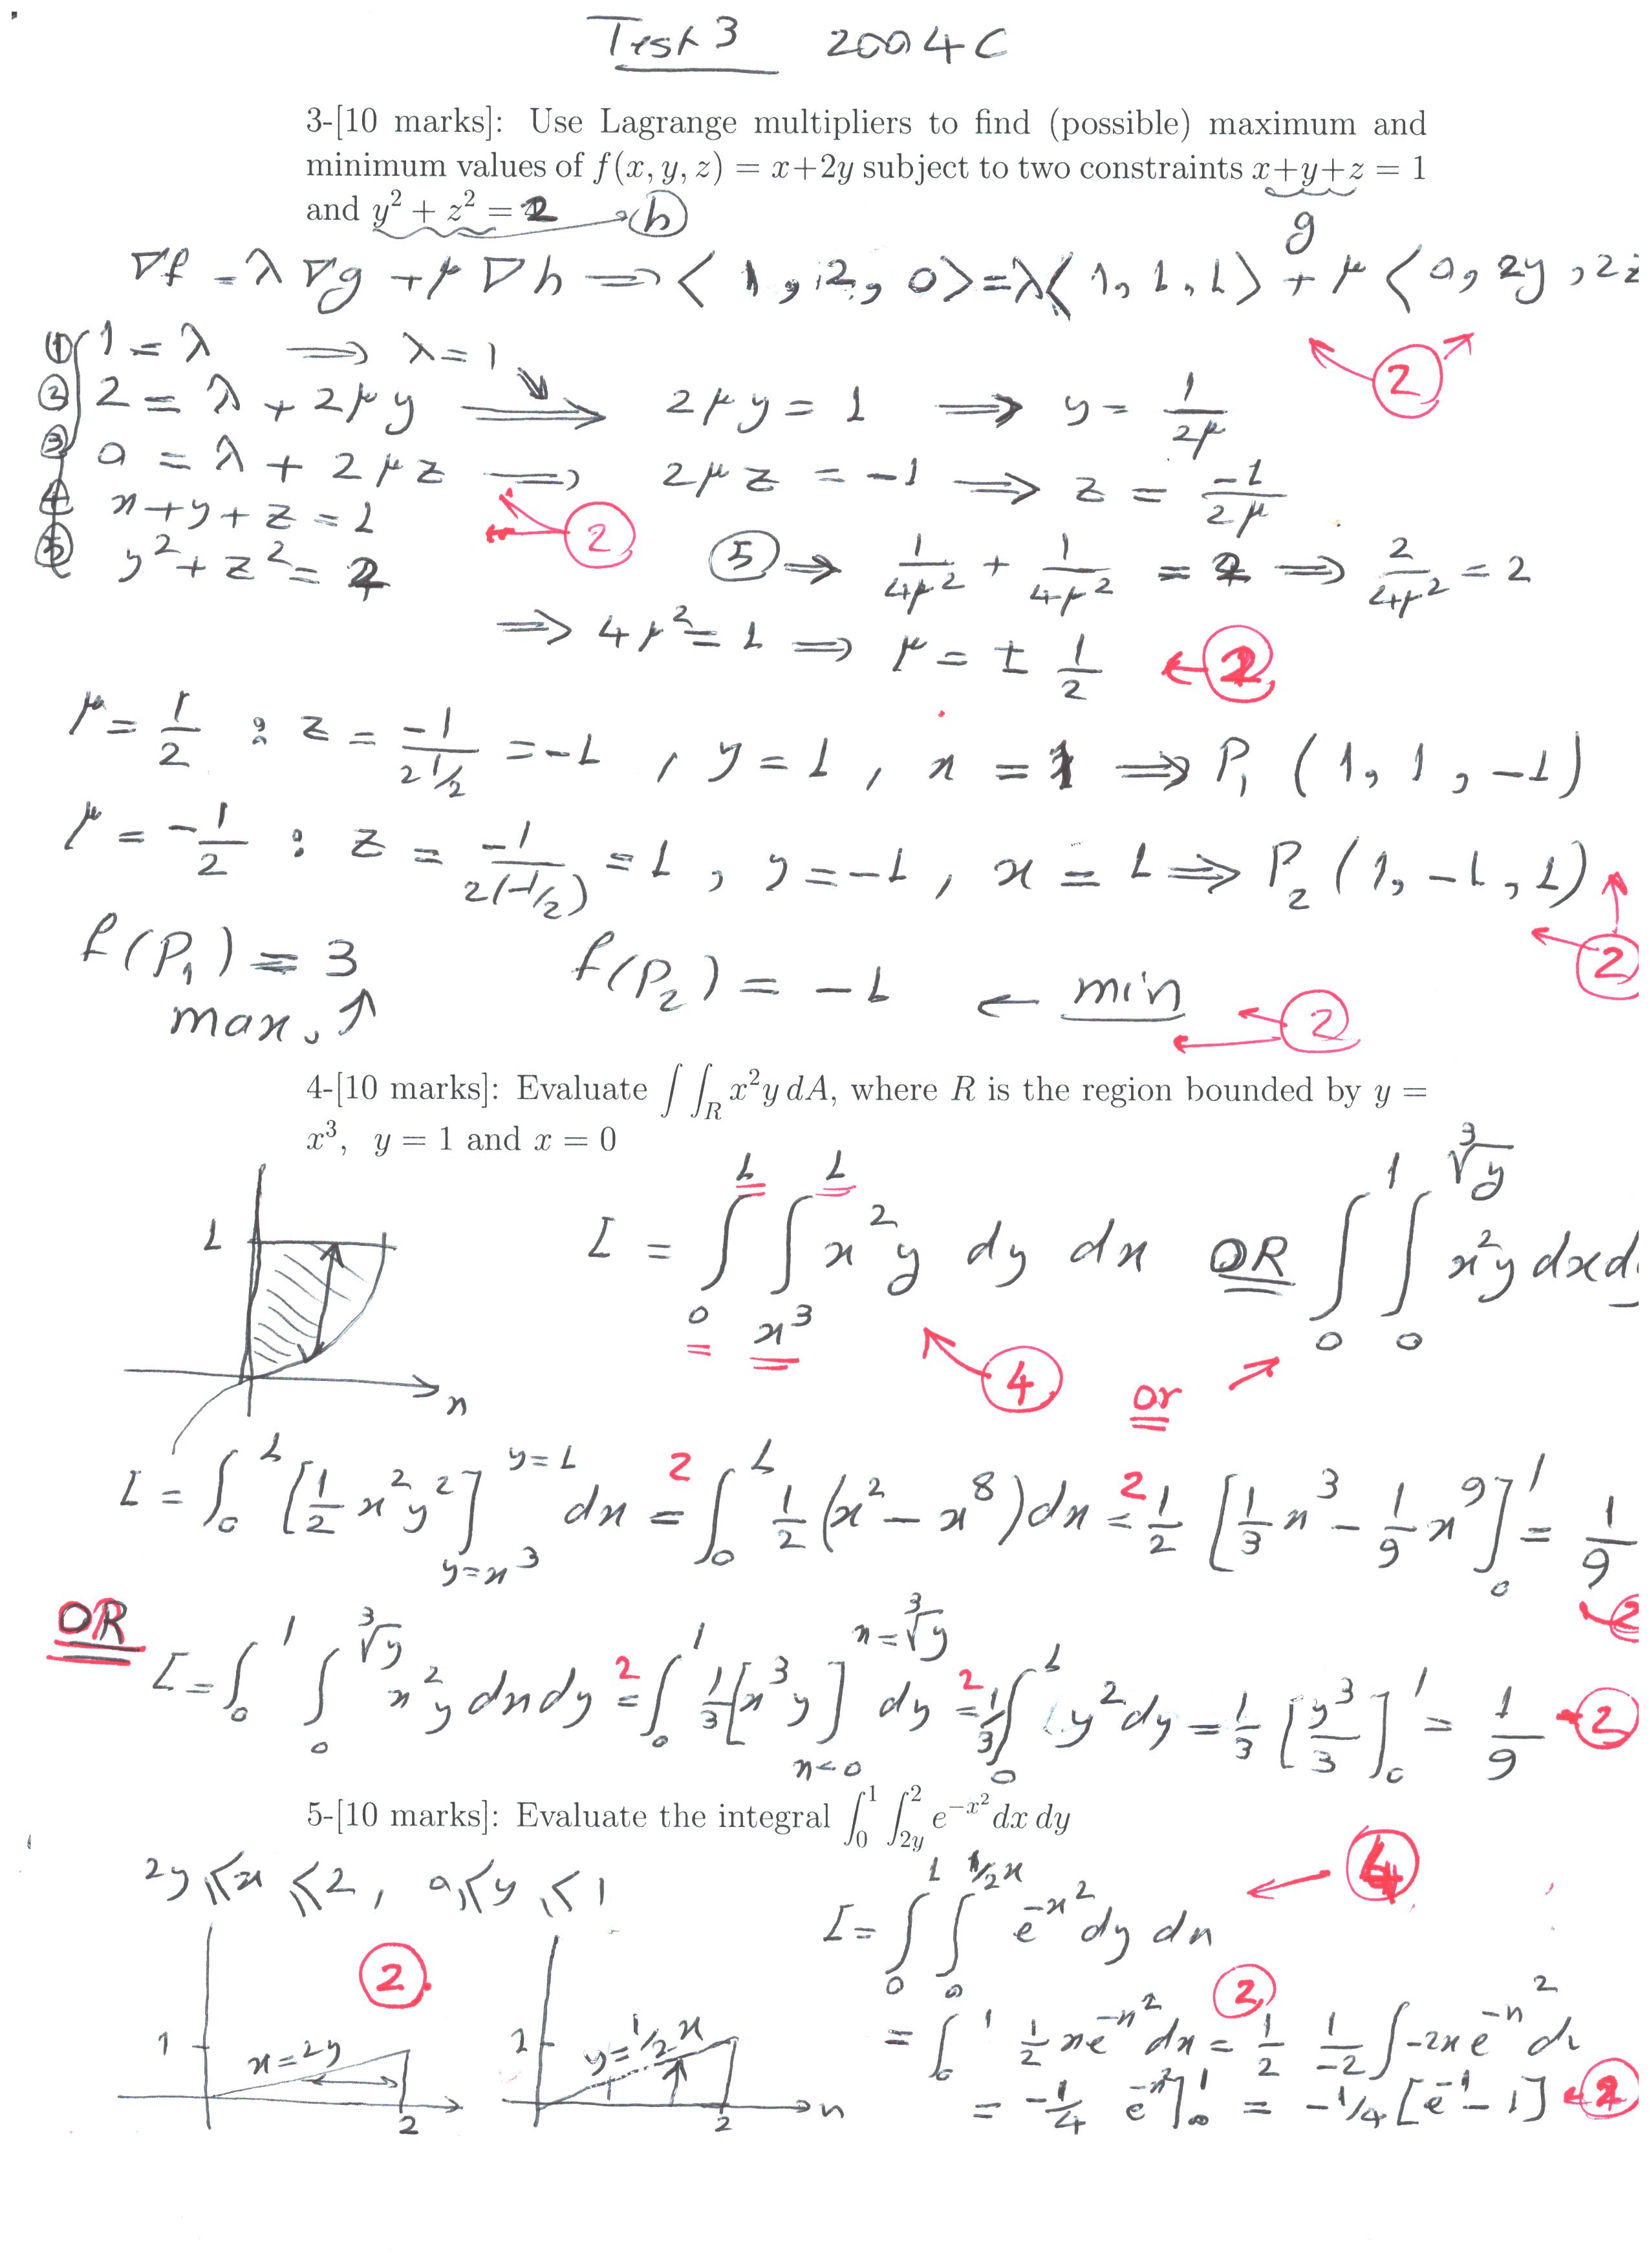 Test 3 2004C
3-[10 marks]: Use Lagrange multipliers to find (possible) maximum and
minimum values of f(x, y, z) = x+2y subject to two constraints x+y+z = 1
and y² + z² = 2 → (h) g
∇f = λ∇g + μ∇h ⟹ < 1, 2, 0> = λ< 1, 1, 1> + μ < 0, 2y, 2z
① 1 = λ ⟹ λ = 1 ②
② 2 = λ + 2μy ⟹ 2μy = 1 ⟹ y = 1/2μ
③ 0 = λ + 2μz ⟹ 2μz = -1 ⟹ z = -1/2μ
④ x+y+z = 1 ②
⑤ y²+z² = 2 ⑤ ⟹ 1/4μ² + 1/4μ² = 2 ⟹ 2/4μ² = 2
⟹ 4μ² = 1 ⟹ μ = ± 1/2 ← ②
μ = 1/2 : z = -1/2 1/2 = -1, y = 1, x = 1 ⟹ P₁ (1, 1, -1)
μ = -1/2 : z = -1/2(-1/2) = 1, y = -1, x = 1 ⟹ P₂ (1, -1, 1) ②
f(P₁) = 3 f(P₂) = -1 ← min ②
max. ↑
4-[10 marks]: Evaluate ∫∫_R x²y dA, where R is the region bounded by y =
x³, y = 1 and x = 0
1 x
I = ∫₀¹ ∫_{x³}^1 x²y dy dx OR ∫₀¹ ∫₀^{∛y} x²y dx d
④ or
I = ∫₀¹ [1/2 x²y²]_{y=x³}^{y=1} dx =² ∫₀¹ 1/2 (x² - x⁸) dx =² 1/2 [1/3 x³ - 1/9 x⁹]₀¹ = 1/9
②
OR I = ∫₀¹ ∫₀^{∛y} x²y dx dy =² ∫₀¹ 1/3 [x³y]_{x=0}^{x=∛y} dy =² 1/3 ∫₀¹ y² dy = 1/3 [y³/3]₀¹ = 1/9 ②
5-[10 marks]: Evaluate the integral ∫₀¹ ∫_{2y}^2 e^{-x²} dx dy
2y ≤ x ≤ 2, 0 ≤ y ≤ 1
② 1 x = 2y 2
2 y = 1/2 x 2 x
I = ∫₀¹ ∫₀^{1/2 x} e^{-x²} dy dx ← ④
= ∫₀¹ 1/2 x e^{-x²} dx =② 1/2 1/-2 ∫ -2x e^{-x²} dx
= -1/4 e^{-x²}]₀¹ = -1/4 [e^{-1} - 1] ← ②